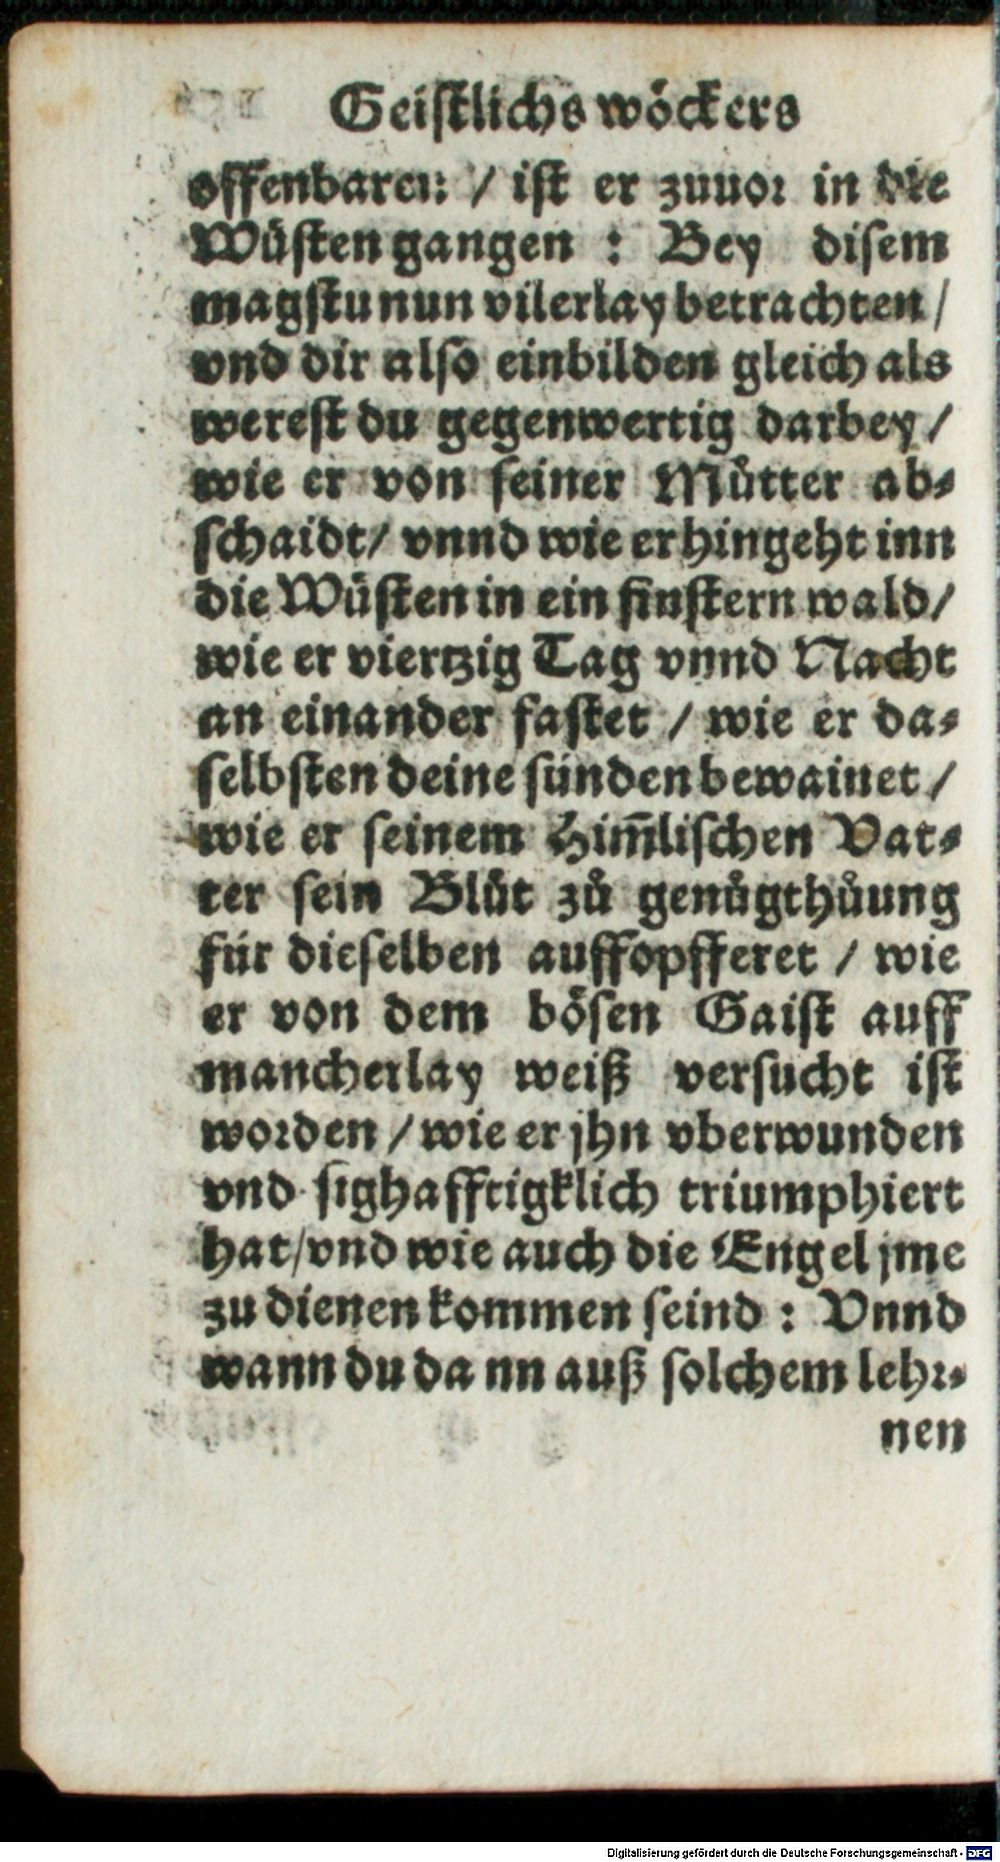 Geistlichs wöckers
offenbaren / ist er zuuor in die
Wüsten gangen : Bey disem
magstu nun vilerlay betrachten /
vnd dir also einbilden gleich als
werest du gegenwertig darbey /
wie er von seiner Můtter ab⸗
schaidt / vnnd wie er hingeht inn
die Wüsten in ein finstern wald /
wie er viertzig Tag vnnd Nacht
an einander fastet / wie er da⸗
selbsten deine sünden bewainet /
wie er seinem Him̃lischen Vat⸗
ter sein Blůt zů genůgthůung
für dieselben auffopfferet / wie
er von dem bösen Gaist auff
mancherlay weiß versucht ist
worden / wie er jhn vberwunden
vnd sighafftigklich triumphiert
hat / vnd wie auch die Engel jme
zu dienen kommen seind : Vnnd
wann du da nn auß solchem lehr⸗
nen
Digitalisierung gefördert durch die Deutsche Forschungsgemeinschaft - DFG